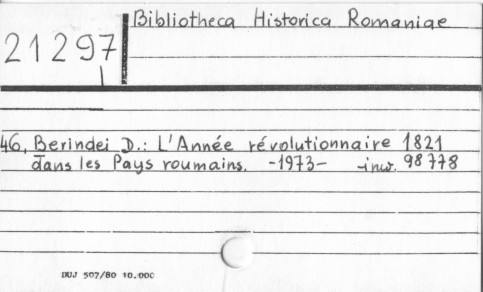 Bibliotheca Historica Romaniae
21297
46, Berindei D.: L'Année révolutionnaire 1821
dans les Pays roumains. -1973- inw. 98778
DUJ 507/80 10.000